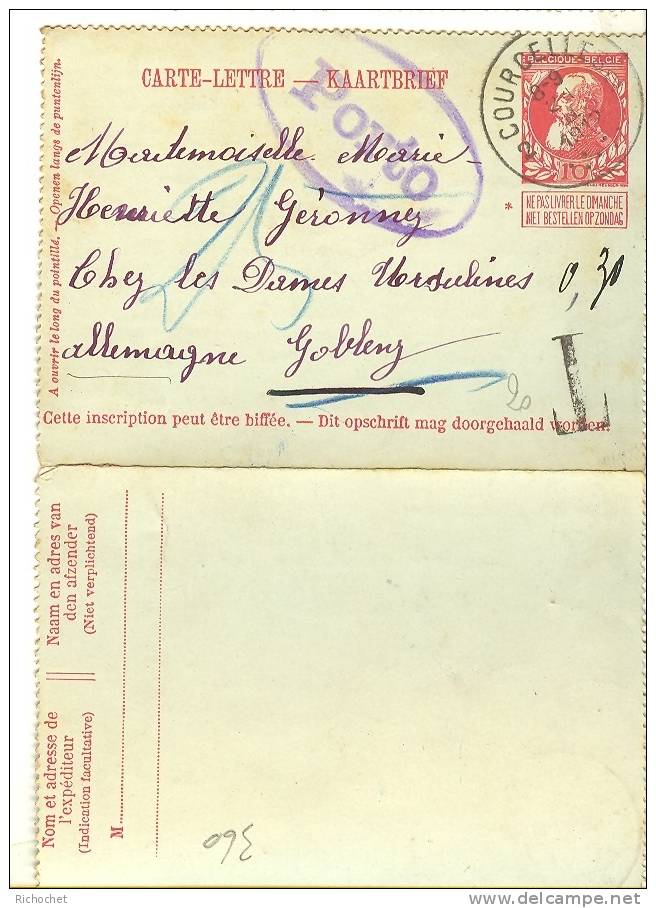 CARTE-LETTRE — KAARTBRIEF
Porto
COURCELLES
8-9
BELGIQUE-BELGIË
10
NE PAS LIVRER LE DIMANCHE
NIET BESTELLEN OP ZONDAG
*
Mademoiselle Marie-
Henriette Géronnez
Chez les Dames Ursulines
allemagne Coblenz
0,30
25
20
T
A ouvrir le long du pointillé. — Openen langs de puntentlijn.
Cette inscription peut être biffée. — Dit opschrift mag doorgehaald worden.
Nom et adresse de
l'expéditeur
(Indication facultative)
Naam en adres van
den afzender
(Niet verplichtend)
M
360
Richochet
delcampe.net